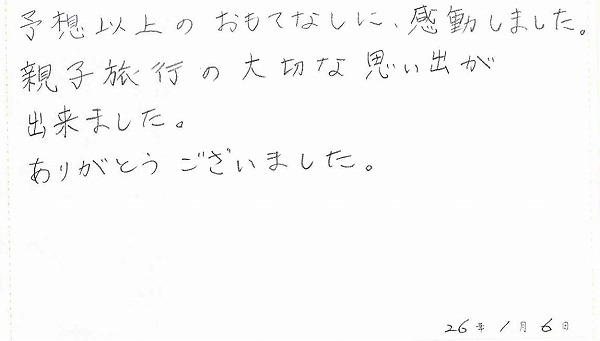 予想以上のおもてなしに、感動しました。
親子旅行の大切な思い出が
出来ました。
ありがとうございました。
26年1月6日